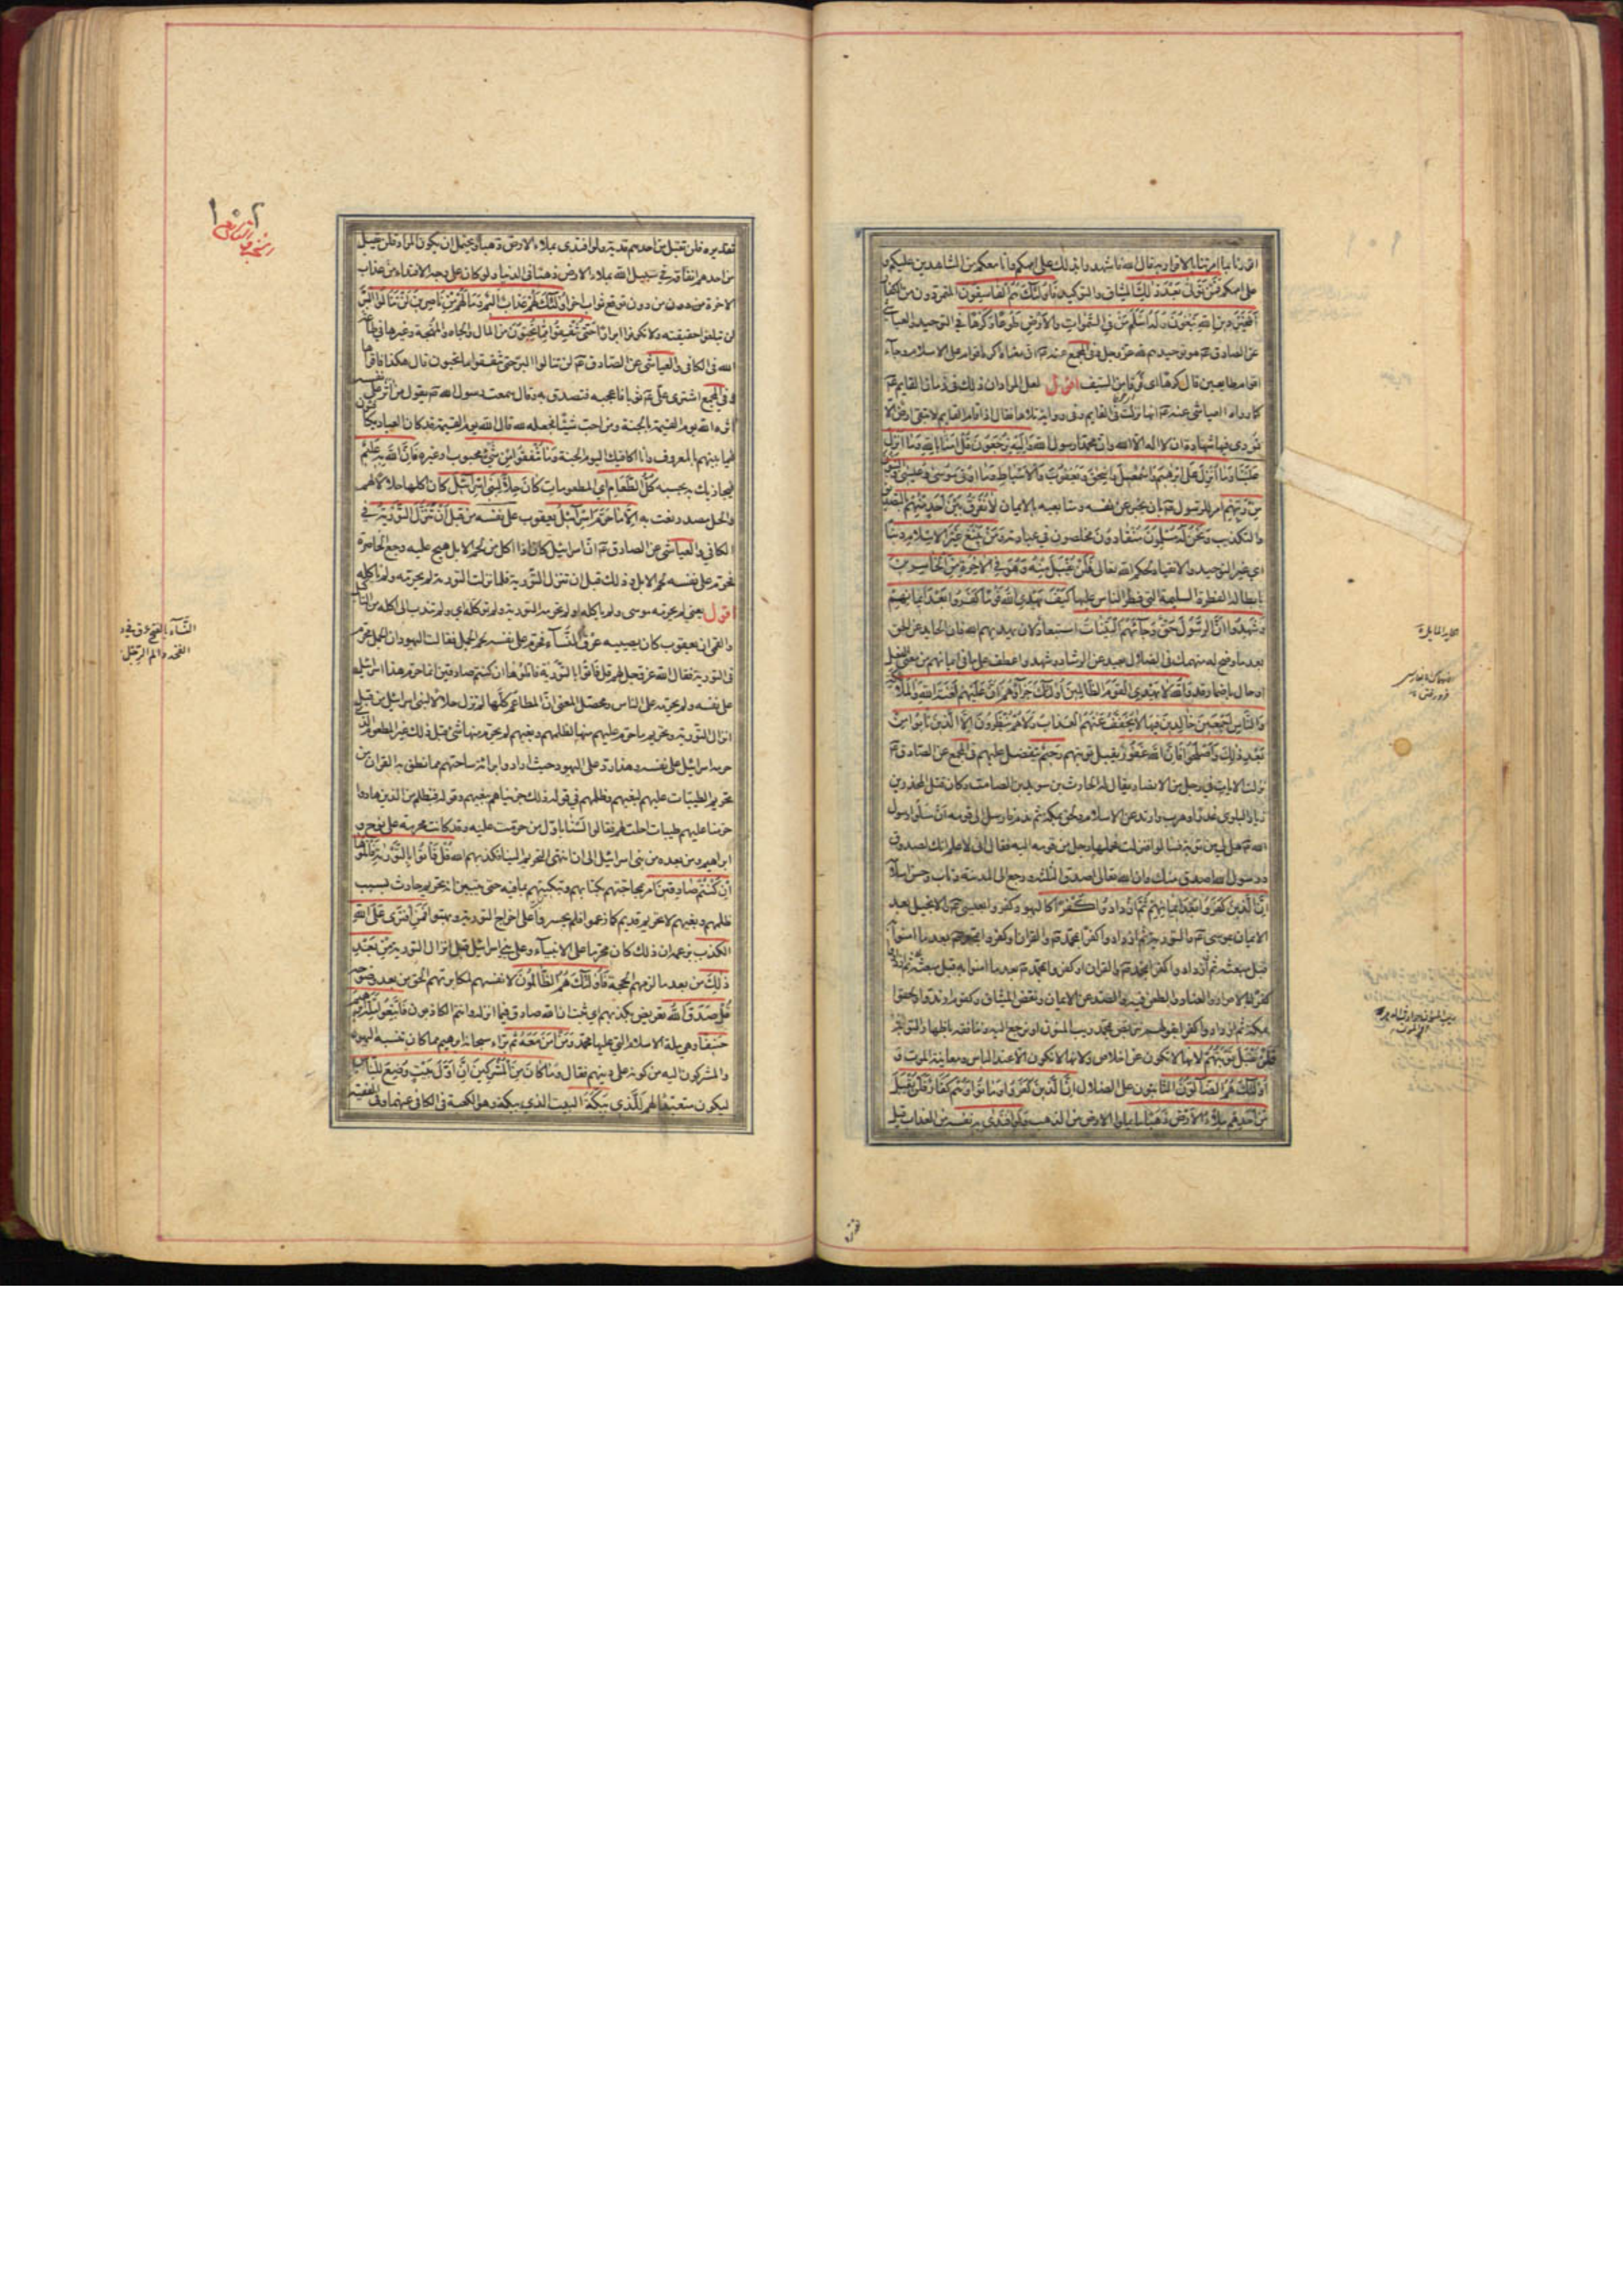 اقررنا بما امرتنا بالاقرار به قال الله فاشهدوا بذلك على اممكم وانا معكم من الشاهدين عليكم و
على اممكم فَمَنْ تَوَلّى بَعْدَ ذلِكَ الميثاق والتوكيد فَاُولئِكَ هُمُ الْفاسِقُونَ المتمردون من الكفار
اَفَغَيْرَ دينِ اللهِ يَبْغُونَ وَلَهُ اَسْلَمَ مَنْ فِي السَّمواتِ وَالْاَرْضِ طَوْعًا وَكَرْهًا في التوحيد والعياشي
عن الصادق هو توحيدهم لله عز وجل وفي المجمع عنه ان معناه اكره اقوام على الاسلام وجاء
اقوام طايعين قال كرها اي فرقا من السيف اقول لعل المراد ان ذلك في زمان القايم
كما رواه العياشي عنه انها نزلت في القايم وفي رواية تلاها فقال اذا قام القايم لا تبقى ارض الا
نودي فيها شهادة ان لا اله الا الله وان محمدا رسول الله وَاِلَيْهِ يُرْجَعُونَ قُلْ امَنّا بِاللهِ وَما اُنْزِلَ
عَلَيْنا وَما اُنْزِلَ عَلى اِبْرهيمَ وَاِسْمعيلَ وَاِسْحقَ وَيَعْقُوبَ وَالْاَسْباطِ وَما اُوتِيَ مُوسى وَعيسى وَالنَّبِيُّونَ
مِنْ رَبِّهِمْ امر للرسول بان يخبر عن نفسه ومتابعيه بالايمان لا نُفَرِّقُ بَيْنَ اَحَدٍ مِنْهُمْ بالتصديق
والتكذيب وَنَحْنُ لَهُ مُسْلِمُونَ منقادون مخلصون في عبادته وَمَنْ يَبْتَغِ غَيْرَ الْاِسْلامِ دينًا
اي غير التوحيد والانقياد لحكم الله تعالى فَلَنْ يُقْبَلَ مِنْهُ وَهُوَ فِي الْاخِرَةِ مِنَ الْخاسِرينَ
بابطاله الفطرة السليمة التي فطر الناس عليها كَيْفَ يَهْدِي اللهُ قَوْمًا كَفَرُوا بَعْدَ ايمانِهِمْ
وَشَهِدُوا اَنَّ الرَّسُولَ حَقٌّ وَجاءَهُمُ الْبَيِّناتُ استبعاد لان يهديهم الله فان الحايد عن الحق
بعد ما وضح له منهمك في الضلال بعيد عن الرشاد وشهدوا عطف على ما في ايمانهم من معنى الفعل
او حال باضمار قد وَاللهُ لا يَهْدِي الْقَوْمَ الظّالِمينَ اُولئِكَ جَزاؤُهُمْ اَنَّ عَلَيْهِمْ لَعْنَةَ اللهِ وَالْمَلئِكَةِ
وَالنّاسِ اَجْمَعينَ خالِدينَ فيها لا يُخَفَّفُ عَنْهُمُ الْعَذابُ وَلا هُمْ يُنْظَرُونَ اِلَّا الَّذينَ تابُوا مِنْ
بَعْدِ ذلِكَ وَاَصْلَحُوا فَاِنَّ اللهَ غَفُورٌ يقبل توبتهم رَحيمٌ يتفضل عليهم في المجمع عن الصادق
نزلت الايات في رجل من الانصار يقال له الحارث بن سويد بن الصامت وكان قتل المجذر بن
زياد البلوي غدرا وهرب وارتد عن الاسلام ولحق بمكة ثم ندم فارسل الى قومه ان سلوا رسول
الله هل لي من توبة فسالوا فنزلت فحملها رجل من قومه اليه فقال اني لاعلم انك لصدوق
ورسول الله اصدق منك وان الله تعالى اصدق الثلثة ورجع الى المدينة وتاب وحسن اسلامه
اِنَّ الَّذينَ كَفَرُوا بَعْدَ ايمانِهِمْ ثُمَّ ازْدادُوا كُفْرًا كاليهود كفروا بعيسى والانجيل بعد
الايمان بموسى والتورية ثم ازدادوا كفرا بمحمد والقران او كفروا بمحمد بعد ما امنوا به
قبل مبعثه ثم ازدادوا كفرا
كفرا بالاصرار والعناد والطعن فيه والصد عن الايمان ونقض الميثاق وكقوم ارتدوا ولحقوا
بمكة ثم ازدادوا كفرا بقولهم نتربص بمحمد ريب المنون او نرجع اليه وننافقه باظهار التوبة
فَلَنْ تُقْبَلَ تَوْبَتُهُمْ لانها لا تكون عن اخلاص ولانها لا تكون الا عند الياس ومعاينة الموت وَ
اُولئِكَ هُمُ الضّالُّونَ الثابتون على الضلال اِنَّ الَّذينَ كَفَرُوا وَماتُوا وَهُمْ كُفّارٌ فَلَنْ يُقْبَلَ
مِنْ اَحَدِهِمْ مِلْءُ الْاَرْضِ ذَهَبًا ما يملوا الارض من الذهب وَلَوِ افْتَدى بِه نفسه من العذاب قيل
تقديره فلن تقبل من احدهم فدية ولو افتدى بملاء الارض ذهبا ويحتمل ان يكون المراد فلن يقبل
من احدهم انفاقه في سبيل الله بملاء الارض ذهبا في الدنيا ولو كان على وجه الافتداء من عذاب
الاخرة من دون توقع ثواب اخر اُولئِكَ لَهُمْ عَذابٌ اَليمٌ وَما لَهُمْ مِنْ ناصِرينَ لَنْ تَنالُوا الْبِرَّ
لن تبلغوا حقيقته ولا تكونوا ابرارا حَتّى تُنْفِقُوا مِمّا تُحِبُّونَ من المال والجاه والمهجة وغيرها في طاعة
الله في الكافي والعياشي عن الصادق لن تنالوا البر حتى تنفقوا ما تحبون قال هكذا فاقراها
وفي المجمع اشترى علي ثوبا فاعجبه فتصدق به وقال سمعت رسول الله يقول من اثر على نفسه
اثره الله يوم القيمة بالجنة ومن احب شيئا فجعله لله قال الله يوم القيمة قد كان العباد يكافئون
فيما بينهم بالمعروف وانا اكافيك اليوم الجنة وَما تُنْفِقُوا مِنْ شَيْءٍ محبوب او غيره فَاِنَّ اللهَ بِه عَليمٌ
فيجازيك بحسبه كُلُّ الطَّعامِ اي المطعومات كانَ حِلًّا لِبَني اِسْرائيلَ كان اكلها حلالا لهم
والحل مصدر نعت به اِلّا ما حَرَّمَ اِسْرائيلُ يعقوب عَلى نَفْسِه مِنْ قَبْلِ اَنْ تُنَزَّلَ التَّوْريةُ في
الكافي والعياشي عن الصادق ان اسرائيل كان اذا اكل من لحم الابل هيج عليه وجع الخاصرة
فحرم على نفسه لحم الابل وذلك قبل ان تنزل التورية فلما نزلت التورية لم يحرمه ولم ياكله
اقول يعني لم يحرمه موسى ولم ياكله
والقمي ان يعقوب كان يصيبه عرق النساء فحرم على نفسه لحم الجمل فقالت اليهود ان الجمل محرم
في التورية فقال الله عز وجل لهم قل فاتوا بالتورية فاتلوها ان كنتم صادقين انما حرم هذا اسرائيل
على نفسه ولم يحرمه على الناس ومحصل المعنى ان المطاعم كلها لم تزل حلالا لبني اسرائيل من قبل
انزال التورية وتحريم ما حرم عليهم منها لظلمهم وبغيهم لم يحرم منها شيء قبل ذلك غير المطعوم الذي
حرمه اسرائيل على نفسه وهذا رد على اليهود حيث ارادوا براءة ساحتهم مما نطق به القران من
تحريم الطيبات عليهم لبغيهم وظلمهم في قوله ذلك جزيناهم ببغيهم وقوله فبظلم من الذين هادوا
حرمنا عليهم طيبات احلت لهم فقالوا لسنا باول من حرمت عليه وقد كانت محرمة على نوح و
ابراهيم ومن بعده من بني اسرائيل الى ان انتهى التحريم الينا فكذبهم الله قُلْ فَأْتُوا بِالتَّوْريةِ فَاتْلُوها
اِنْ كُنْتُمْ صادِقينَ امر بمحاجتهم بكتابهم وتبكيتهم بما فيه حتى يتبين انه تحريم حادث بسبب
ظلمهم وبغيهم لا تحريم قديم كما زعموا فلم يجسروا على اخراج التورية وبهتوا فَمَنِ افْتَرى عَلَى اللهِ
الْكَذِبَ بزعمه ان ذلك كان محرما على الانبياء وعلى بني اسرائيل قبل انزال التورية مِنْ بَعْدِ
ذلِكَ من بعد ما لزمهم الحجة فَاُولئِكَ هُمُ الظّالِمُونَ لانفسهم لمكابرتهم الحق من بعد وضوحه
قُلْ صَدَقَ اللهُ تعريض بكذبهم اي ثبت ان الله صادق فيما انزله وانتم الكاذبون فَاتَّبِعُوا مِلَّةَ اِبْرهيمَ
حَنيفًا وهي ملة الاسلام التي عليها محمد ومن امن معه ثم براء سبحانه ابرهيم مما كان تنسبه اليهود
والمشركون اليه من كونه على دينهم فقال وَما كانَ مِنَ الْمُشْرِكينَ اِنَّ اَوَّلَ بَيْتٍ وُضِعَ لِلنّاسِ
ليكون متعبدا لهم لَلَّذي بِبَكَّةَ البيت الذي ببكة وهو الكعبة في الكافي عنهما وفي الفقيه
النساء بالفتح عرق في
الفخذ